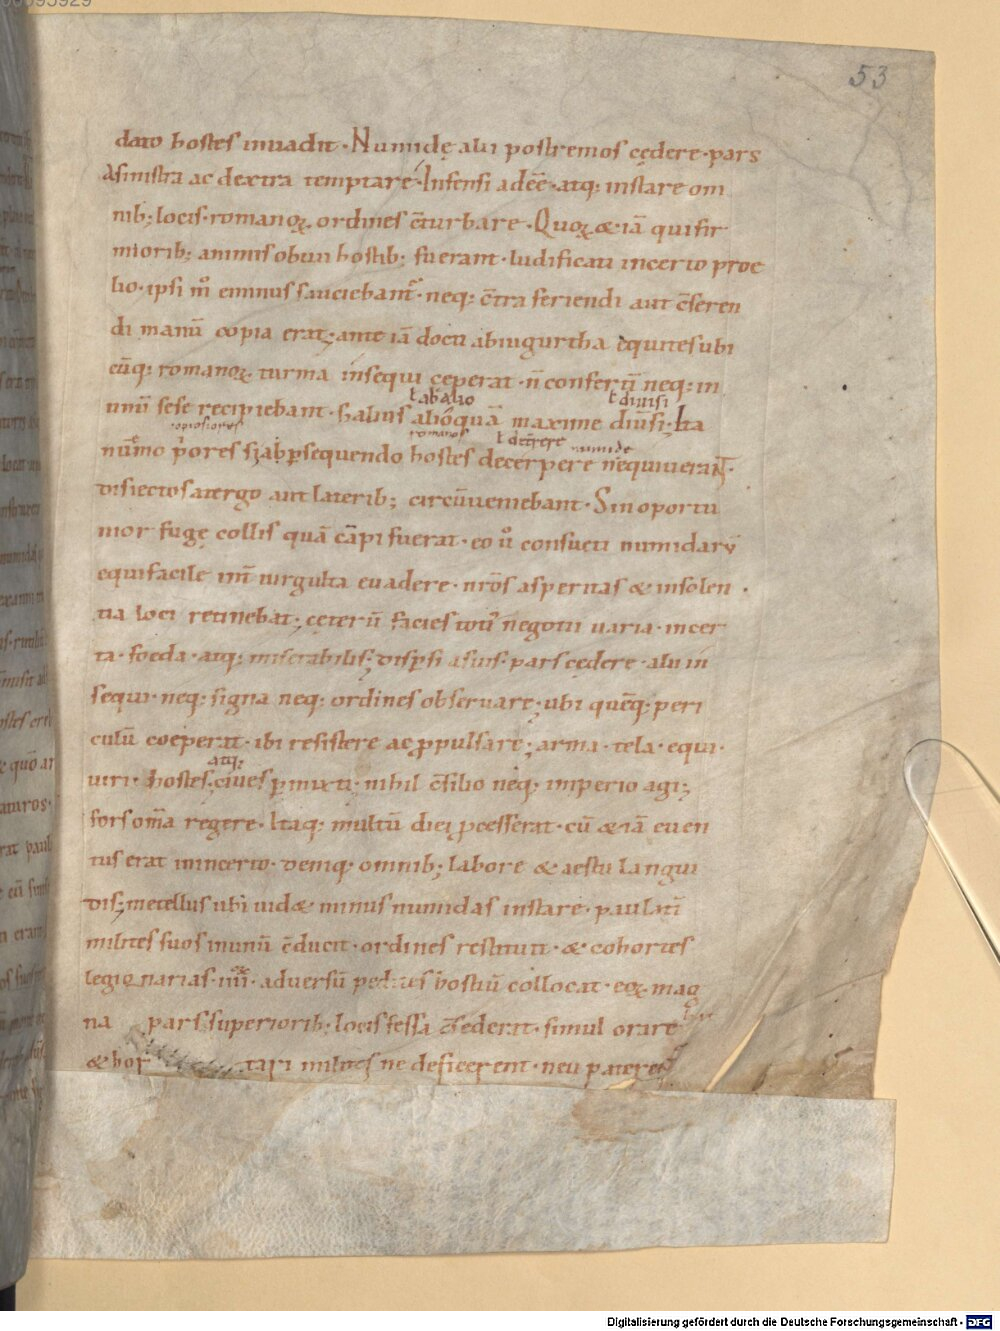 53
dato hostes inuadit · Numidę alii postremos cędere · pars
Asinistra ac dextra temptare · Infensi adeē · atq; instare om
nib; locis · romanoꝝ ordines c̄turbare · Quoꝝ & iā qui fir
miorib; animis obuii hostib; fuerant · ludificati incerto proe
lio · ipsi m̊ eminus sauciebant̃ · neq; c̄tra feriendi aut c̄seren
di manū copia erat; ante iā docti abiugurtha equites ubi
cūq; romanoꝝ turma insequi cęperat · n̄ confertī neq; in
ł ab alio ł diuisi
unū sese recipiebant · s; alius alió quā maxime diuīsi; Ita
copiosiores romanos ł det̄rere numidę
num̄o p̍ores si; ab ꝑsequendo hostes decerpere nequiuerant̃ ·
disiectos atergo aut laterib; circūueniebant · Sin oportu
nior fugę collis quā cāpi fuerat · eo u̍o consueti numidarū
equi facile int̄ uirgulta euadere · nr̄os asperitas & insolen
tia loci retinebat; cęterū facies toti᷒ negotii uaria · incer
ta · foeda · atq; miserabilis; disꝑsi asuis · pars cędere · alii in
sequi · neq; signa neq; ordines obseruare; ubi quēq; peri
culū coeperat · ibi resistere ac ꝓpulsare; arma · tela · equi ·
atq;
uiri · hostes; ciues ꝑmixti · nihil c̄silio neq; imperio agi;
fors om̄ia regere · Itaq; multū diei ꝓcesserat · cū & iā euen
tus erat inincerto · deniq; omnib; labore & aestu langui
dis; metellus ubi uid& minus numidas instare · paulatī
milites suos inunū c̄ducit · ordines restituit · & cohortes
legionarias · IIII · aduersū pedites hostiū collocat · eoꝝ mag
na pars superiorib; locis fessa c̄sederat · simul orare
& hor tari milites ne deficerent · neu patere
Digitalisierung gefördert durch die Deutsche Forschungsgemeinschaft - DFG